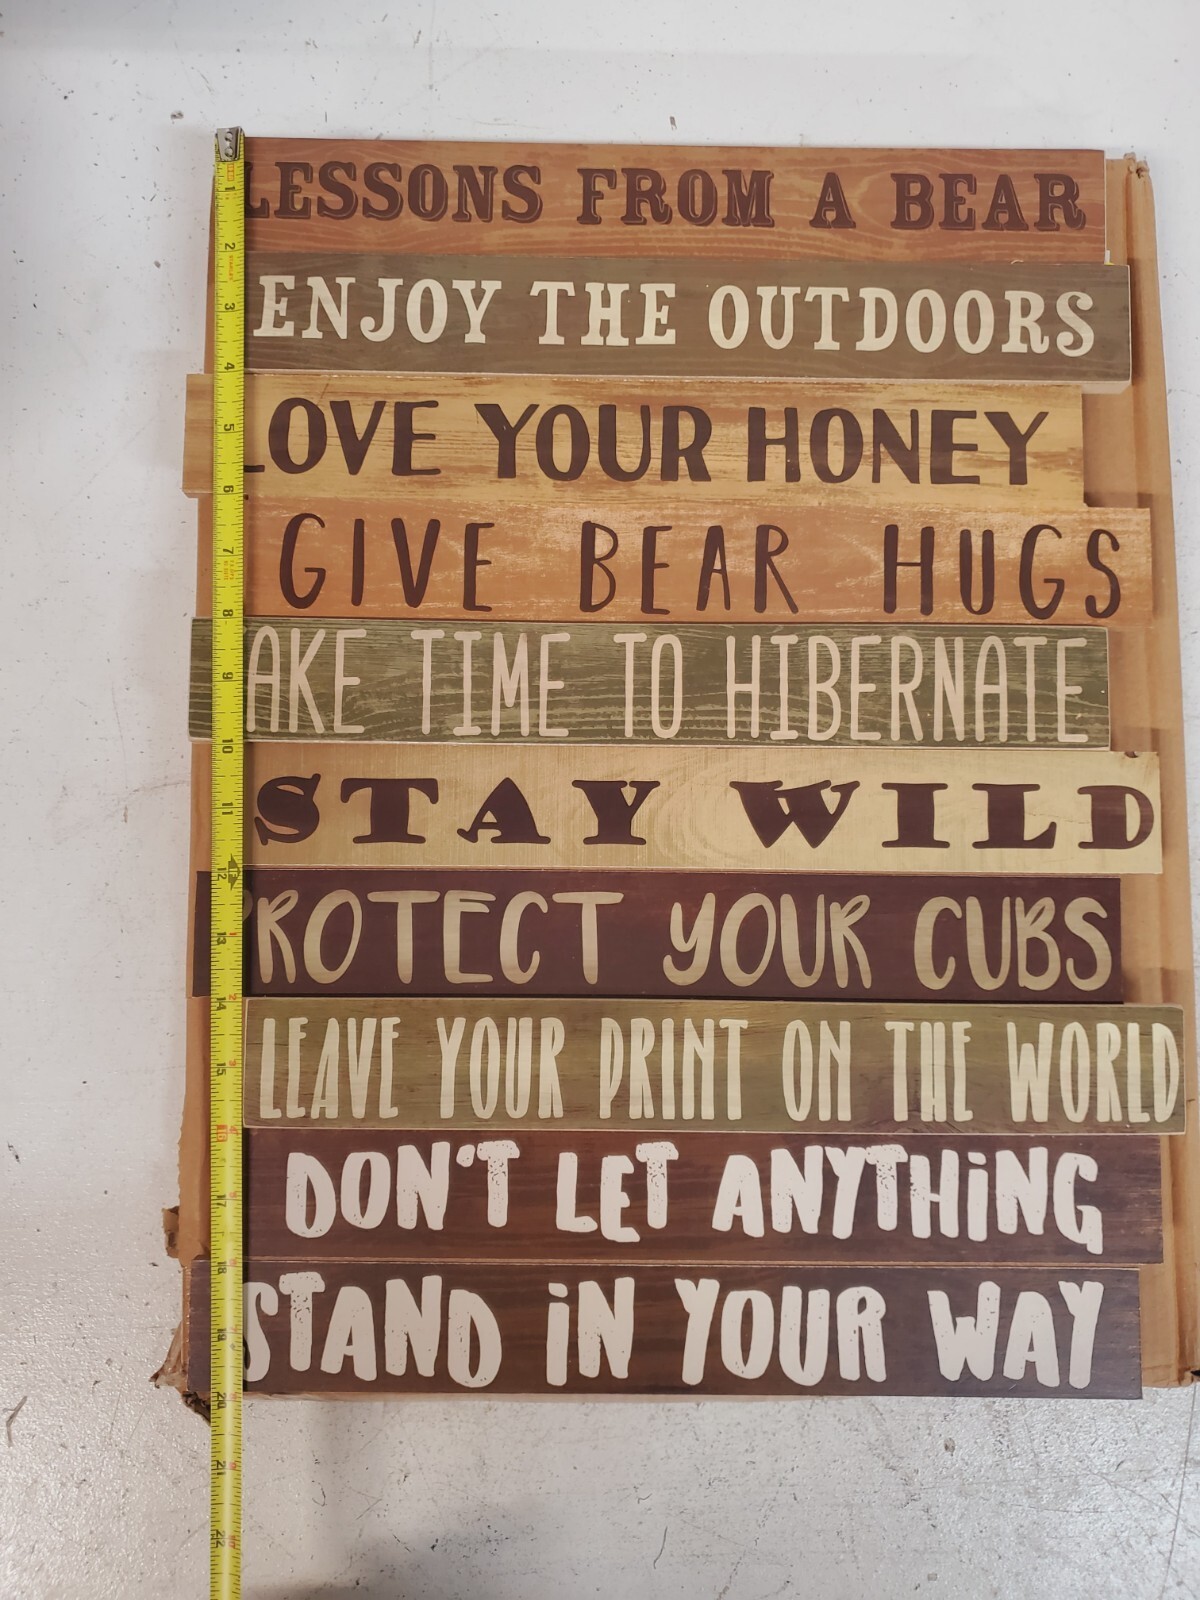 LESSONS FROM A BEAR
ENJOY THE OUTDOORS
LOVE YOUR HONEY
GIVE BEAR HUGS
AKE TIME TO HIBERNATE
STAY WILD
PROTECT YOUR CUBS
LEAVE YOUR PRINT ON THE WORLD
DON'T LET ANYTHING
STAND iN YOUR WAY
1
2
3
4
5
6
7
8
9
10
11
12
13
14
15
17
18
19
20
21
22